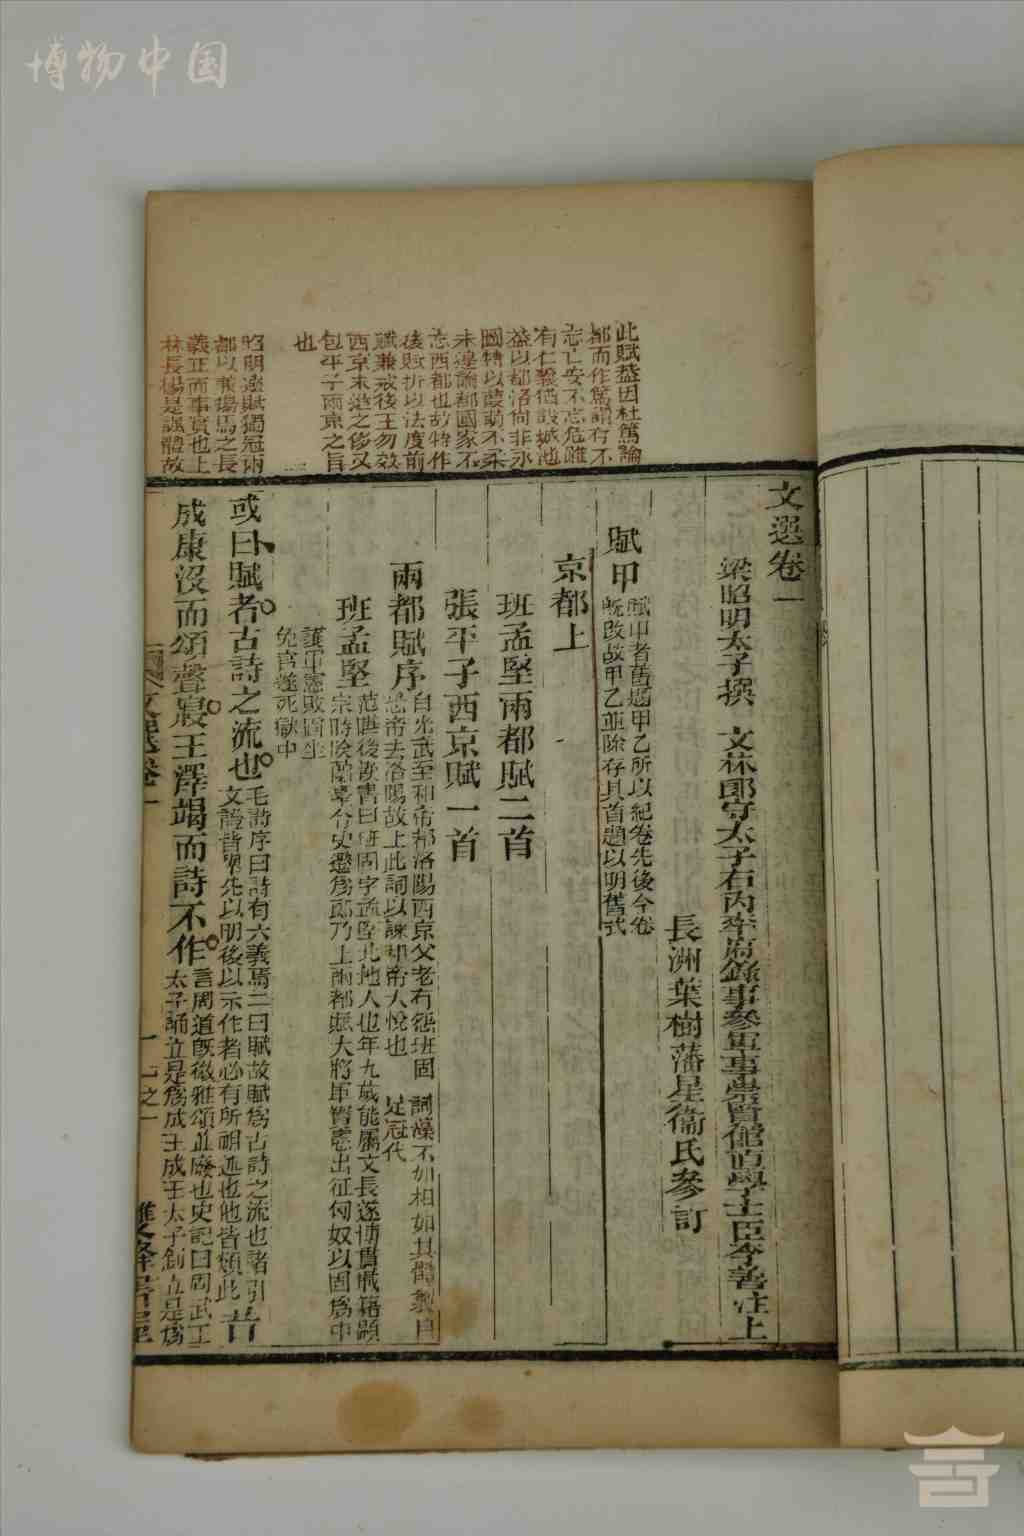 博物中国
此賦蓋因杜篤論
都而作篤謂存不
忘亡安不忘危雖
有仁義猶設城池
蓋以都洛尚非永
圖特以葭萌不柔
未遑論都國家不
忘西都也故特作
後賦折以法度前
賦兼戒後王勿效
西京末造之侈又
包平子兩京之旨
也
昭明選賦獨冠兩
都以兼揚馬之長
義正而事實也上
林長楊是諷體故
文選卷一
梁昭明太子撰 文林郎守太子右內率府錄事參軍事崇賢館直學士臣李善注上
長洲葉樹藩星衞氏參訂
賦甲
賦甲者舊題甲乙所以紀卷先後今卷
既改故甲乙並除存其首題以明舊式
京都上
班孟堅兩都賦二首
張平子西京賦一首
兩都賦序
自光武至和帝都洛陽西京父老有怨班固 詞藻不如相如其體製自
恐帝去洛陽故上此詞以諫和帝大悅也 足冠代
班孟堅
范曄後漢書曰班固字孟堅北地人也年九歲能屬文長遂博貫載籍顯
宗時除蘭臺令史遷爲郎乃上兩都賦大將軍竇憲出征匈奴以固爲中
護軍憲敗固坐
免官遂死獄中
或曰賦者古詩之流也
毛詩序曰詩有六義焉二曰賦故賦爲古詩之流也諸引
文證皆舉先以明後以示作者必有所祖述也他皆類此
昔
成康沒而頌聲寢王澤竭而詩不作
言周道既微雅頌並廢也史記曰周武王
太子誦立是爲成王成王太子釗立是爲
文選卷一
一 七之一
雙峰書屋